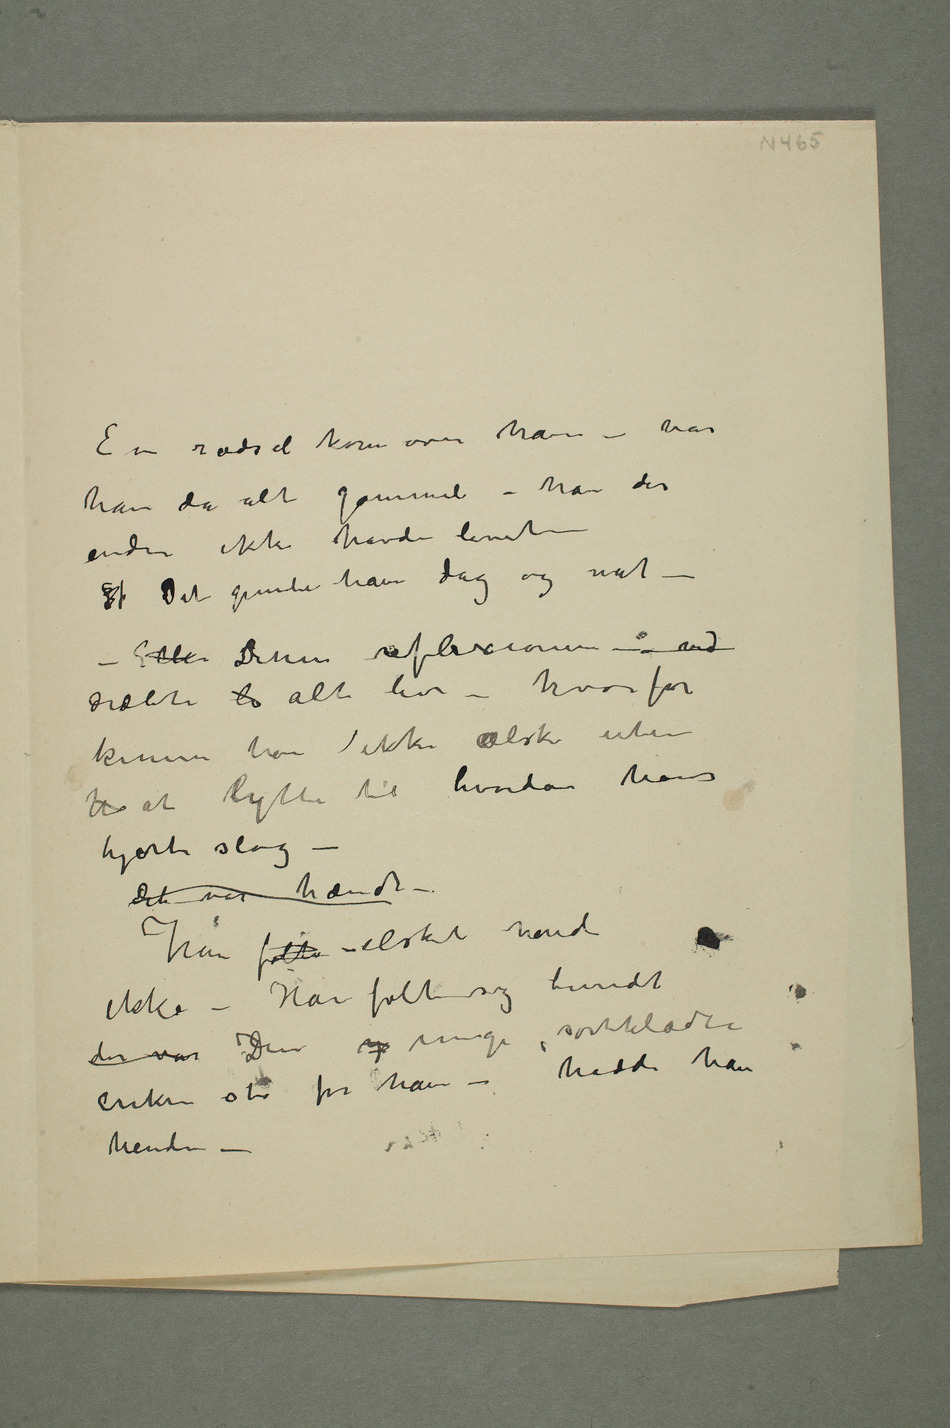 N465
En rædsel kom over ham – var
han da alt gammel – han der
endnu ikke havde levet –
Det pinte ham dag og nat –
– Eller Denne reflexionen – ved
dræbte alt liv – hvorfor
kunne han ikke ælske uten
at lytte til hvordan hans
hjerte slog –
Det var hændt –
Han følte elsket hende
ikke – Han følte sig bundet
der var Den unge, sortklædte
enken sto for ham – hadde han
hende –